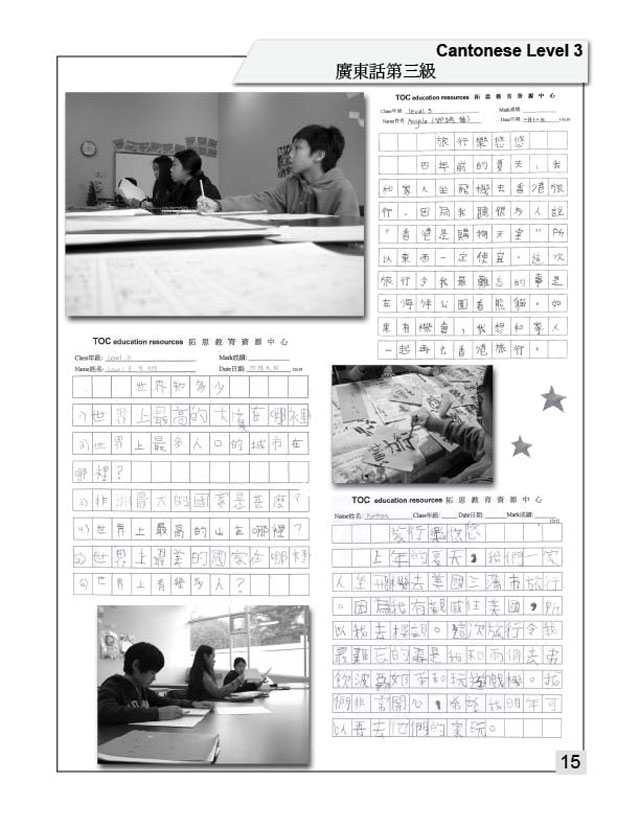 Cantonese Level 3
廣東話第三級
TOC education resources 拓思教育資源中心
Class年級: Level 3 Mark成績:
Name姓名: Angela Date日期:
旅行樂悠悠
四年前的夏天，我
和家人坐飛機去香港旅
行。因為我聽很多人說
"香港是購物天堂"所
以東西一定便宜。這次
旅行令我最難忘的事是
在海洋公園看熊貓。如
果有機會，我想和家人
一起再去香港旅行。
TOC education resources 拓思教育資源中心
Class年級: Level 3 Mark成績:
Name姓名: Date日期:
世界知多少
1)世界上最高的大廈在哪裡
2)世界上最多人口的城市在
哪裡？
3)非洲最大的國家是甚麼？
4)世界上最高的山在哪裡？
5)世界上最美的國家在哪裡
6)世界上有幾多人？
TOC education resources 拓思教育資源中心
Name姓名: Class年級: Date日期: Mark成績:
旅行樂悠悠
上年的夏天，我們一家
人坐飛機去美國三藩市旅行
。因為我有親戚住美國，所
以我去探訪。這次旅行令我
最難忘的事是我和兩個表弟
飲波霸奶茶和玩遊戲機。我
們非常開心，希望我明年可
以再去他們的家玩。
15